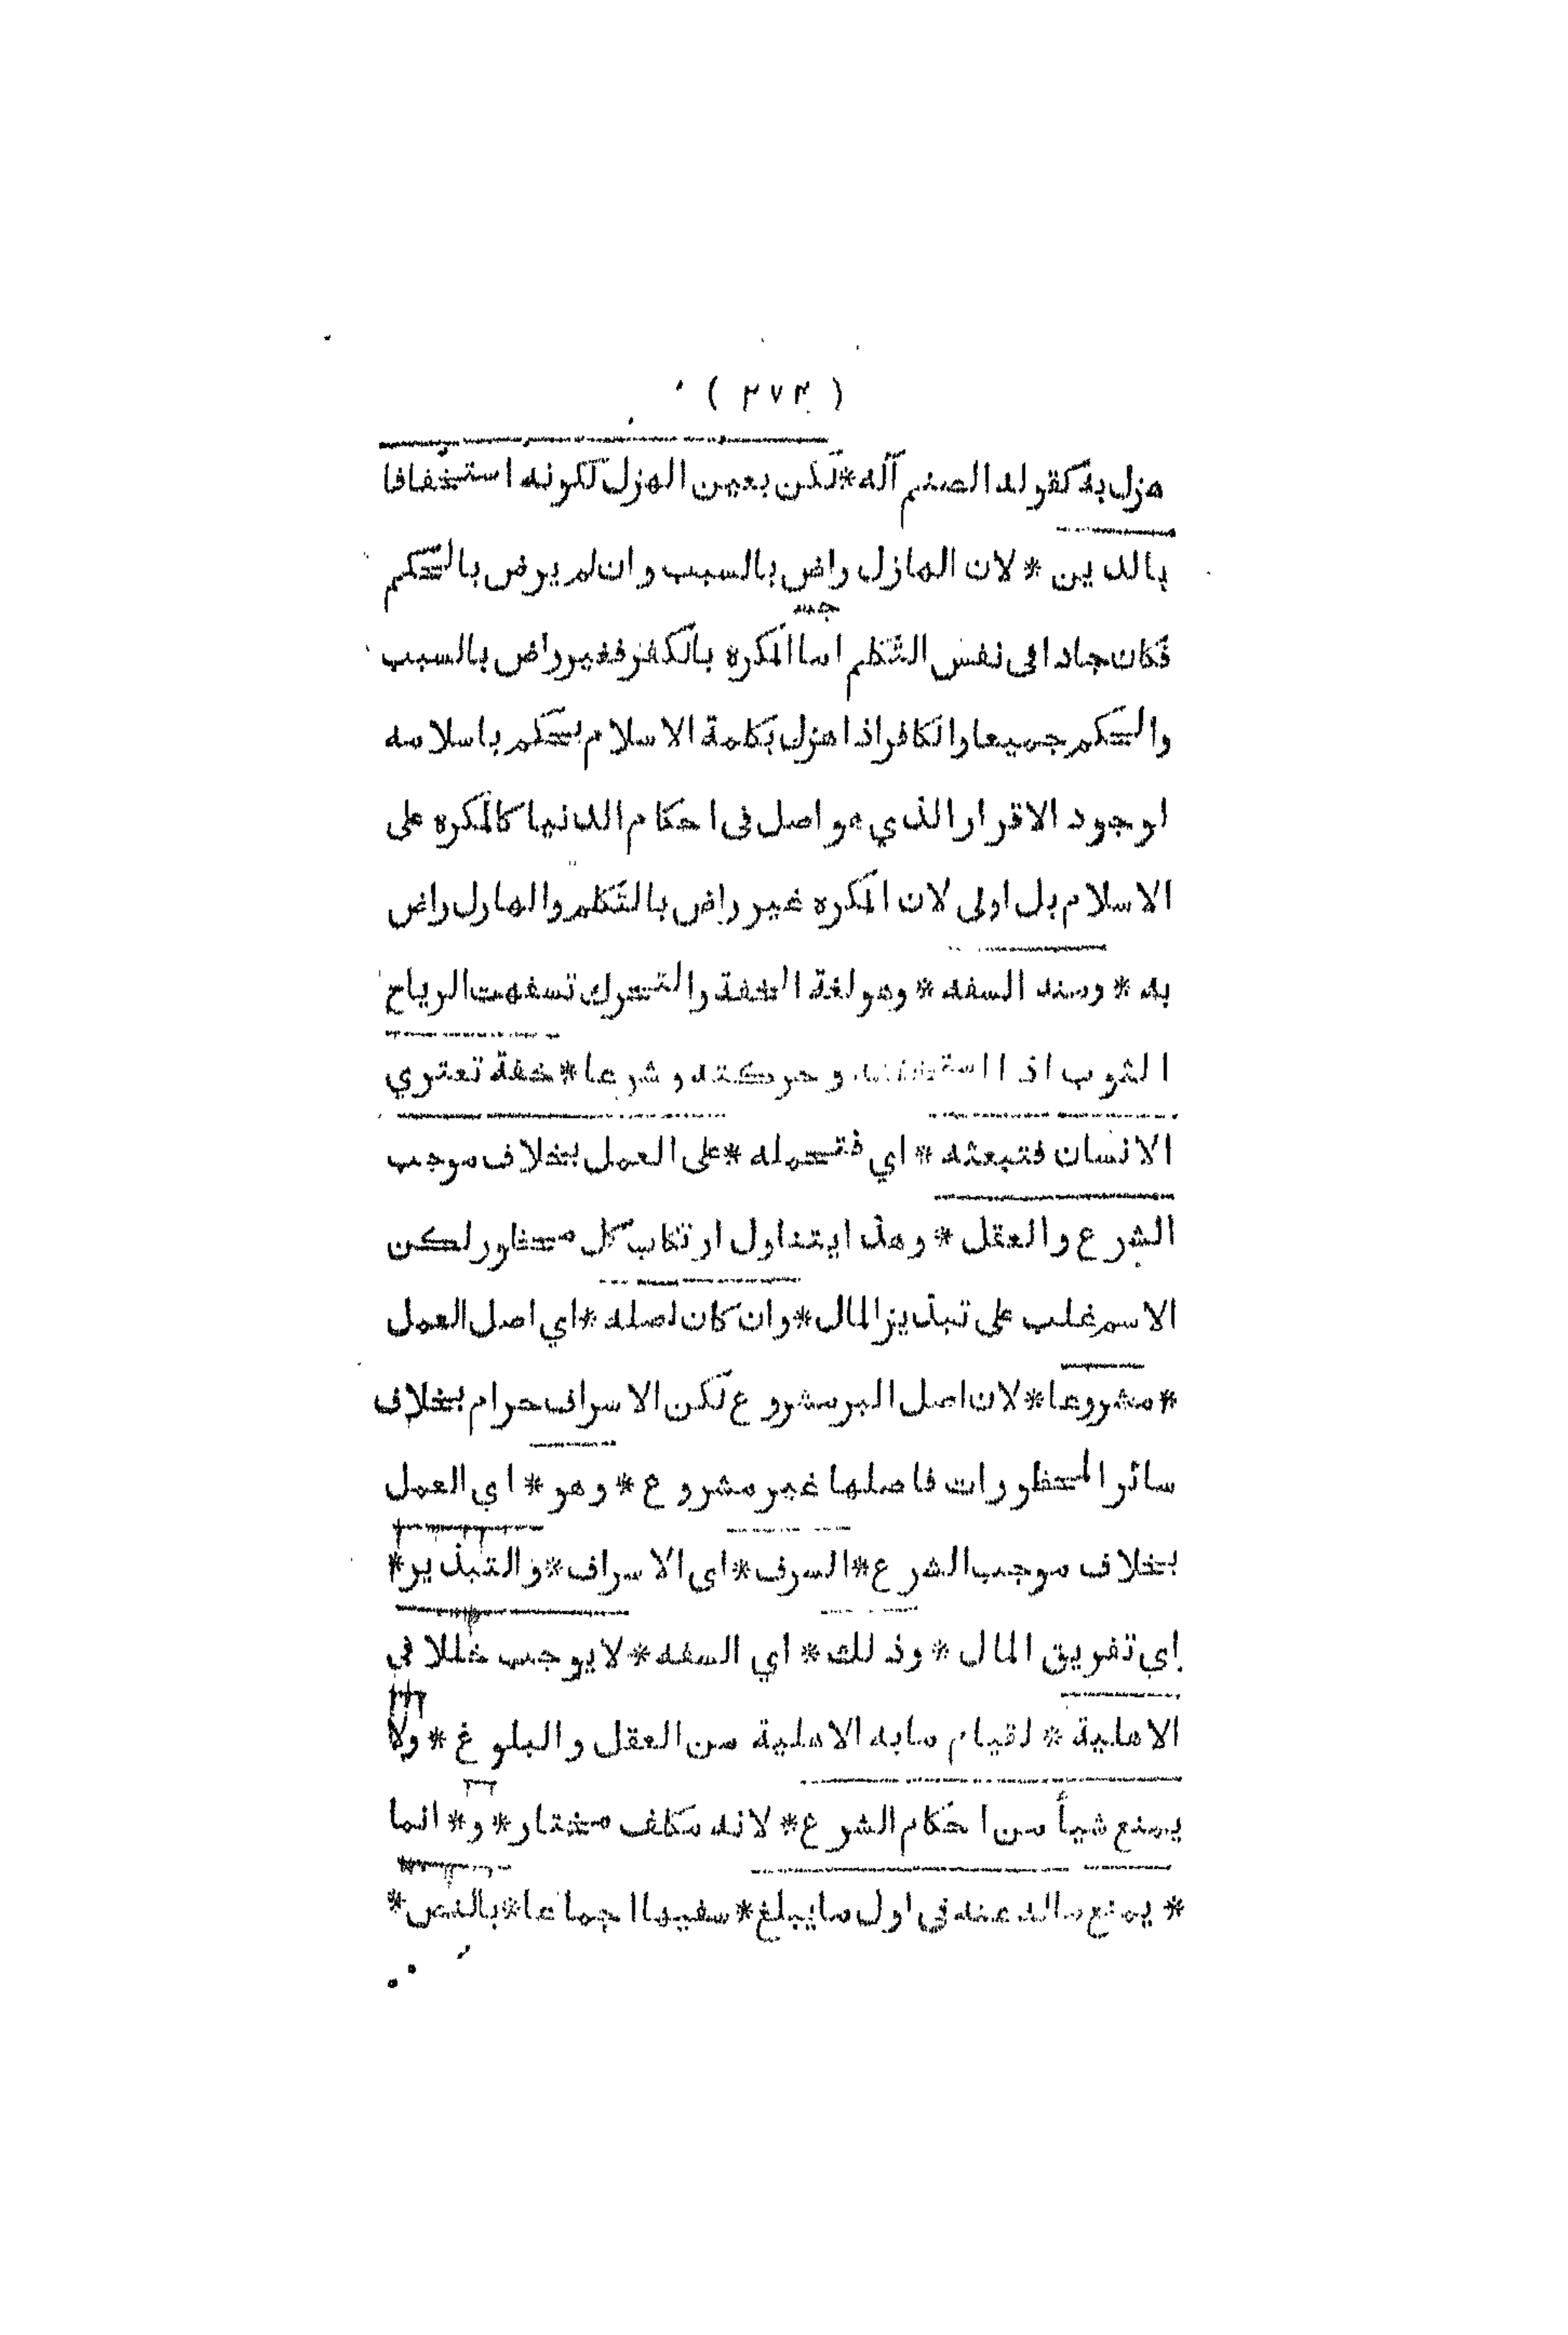 ( ٢٧٣ )
هزل به كقوله الصنم آله * لكن بعين الهزل لكونه استخفافا
بالدين * لان الهازل راض بالسبب وان لم يرض بالحكم
فكان جادا فى نفس التكلم اما المكره بالكفر فغير راض بالسبب
والحكم جميعا والكافر اذا هزل بكلمة الاسلام يحكم باسلامه
لوجود الاقرار الذي هو اصل فى احكام الدنيا كالمكره على
الاسلام بل اولى لان المكره غير راض بالتكلم والهازل راض
به * ومنه السفه * وهو لغة الخفة والتحرك تسفهت الرياح
الثوب اذا استخفته وحركته وشرعا * خفة تعتري
الانسان فتبعثه * اي فتحمله * على العمل بخلاف موجب
الشرع والعقل * وهذا يتناول ارتكاب كل محظور لكن
الاسم غلب على تبذير المال * وان كان اصله * اي اصل العمل
* مشروعا * لان اصل البر مشروع لكن الاسراف حرام بخلاف
سائر المحظورات فاصلها غير مشروع * وهو * اي العمل
بخلاف موجب الشرع * السرف * اى الاسراف * والتبذير *
اي تفريق المال * وذلك * اي السفه * لا يوجب خللا في
الاهلية * لقيام مابه الاهلية من العقل والبلوغ * ولا
يمنع شيأ من احكام الشرع * لانه مكلف مختار * و * انما
* يمنع ماله عنه في اول مايبلغ * سفيها اجماعا * بالنص *